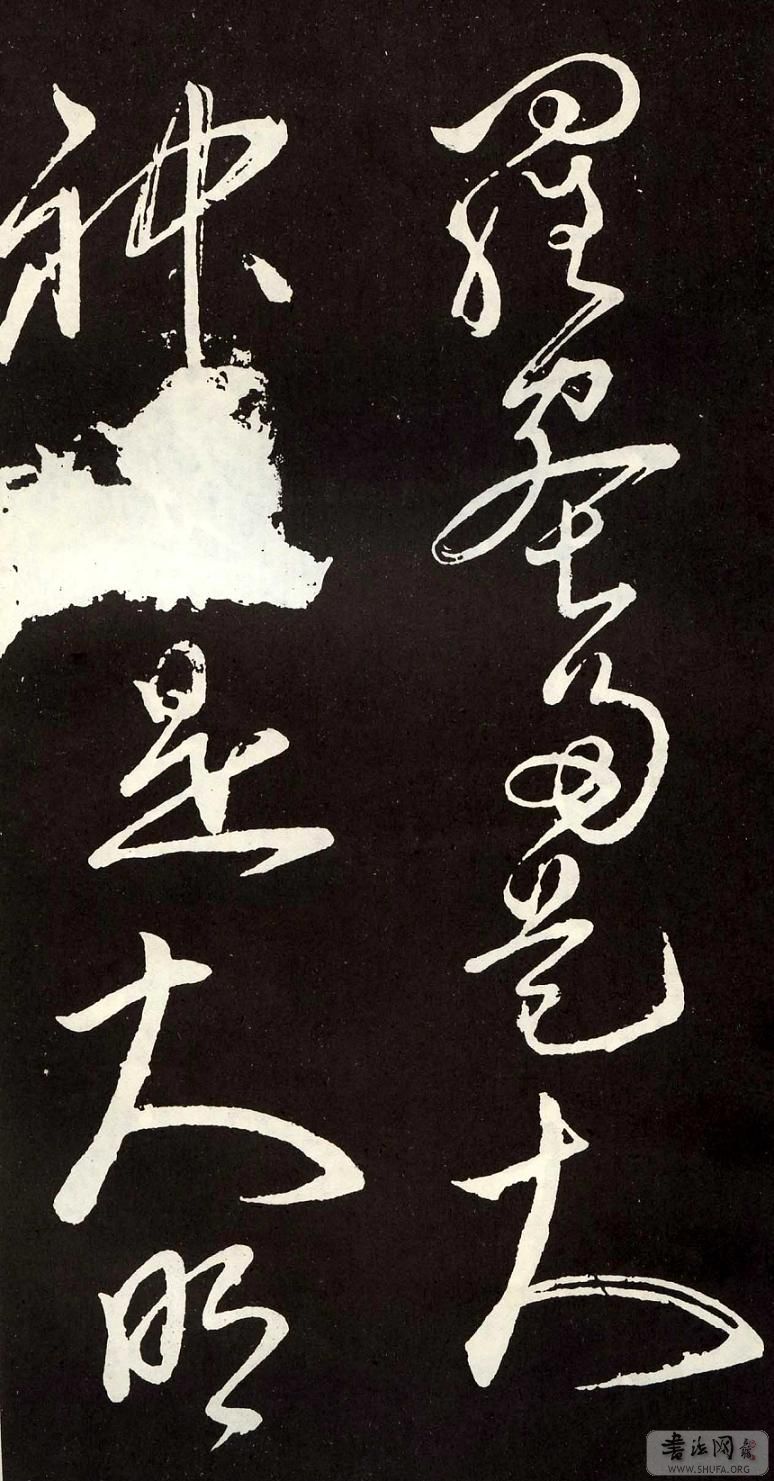 羅蜜多是大
神是大明
書法网
WWW.SHUFA.ORG